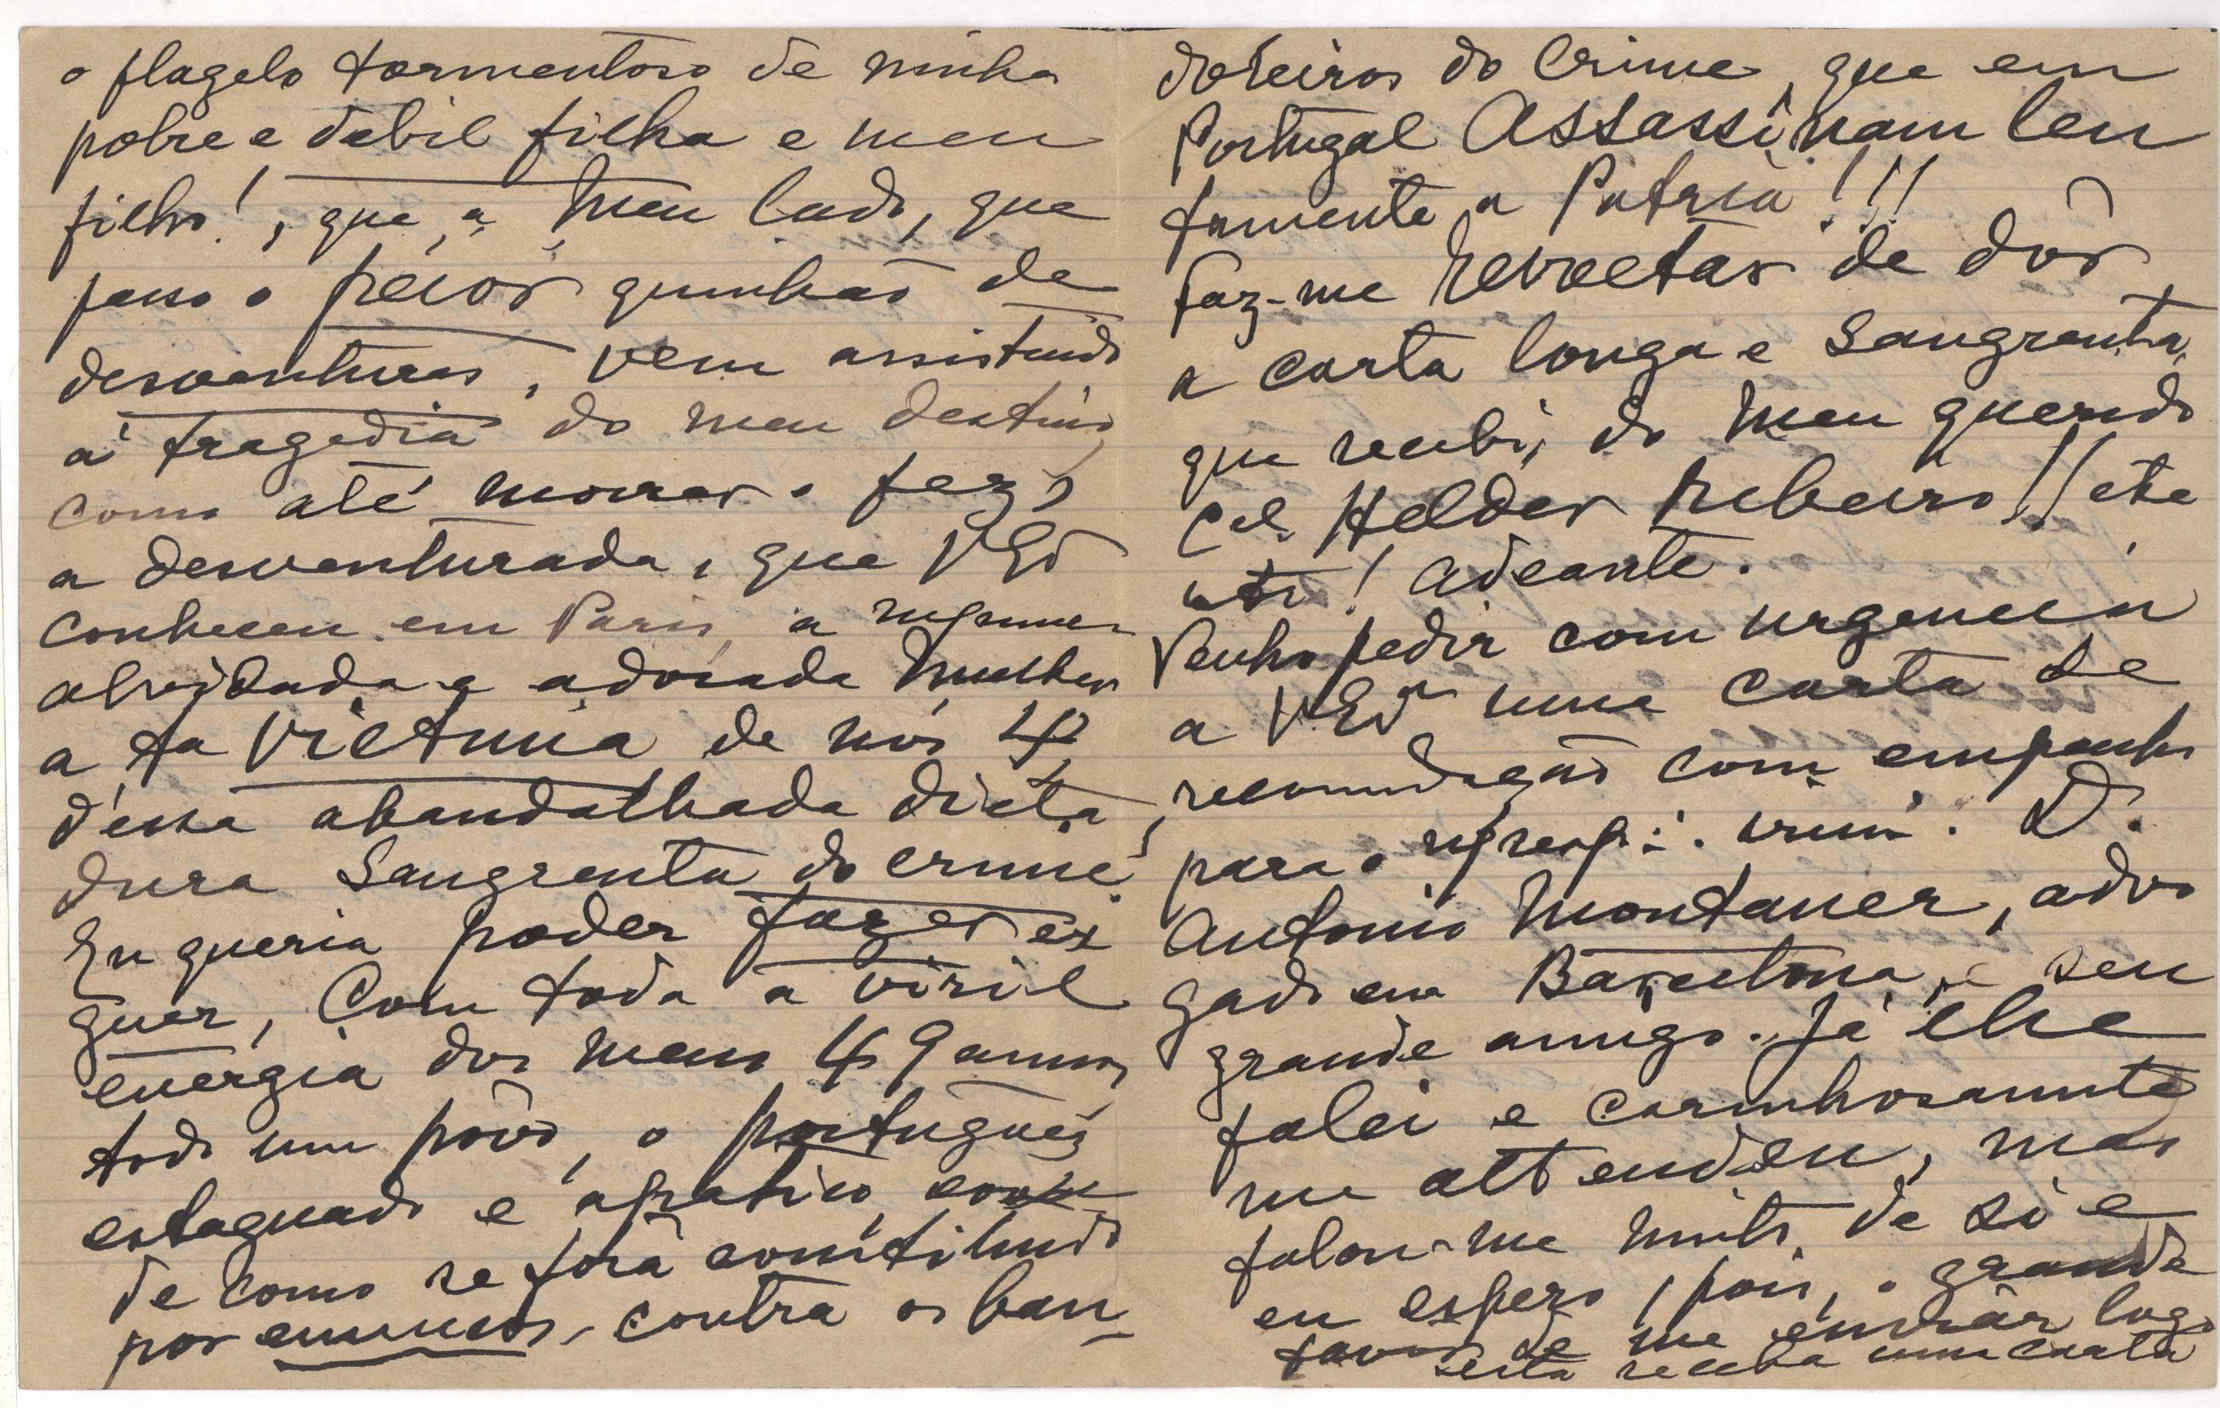 o flagelo tormentoso de minha
pobre e debil filha e meu
filho!, que, a meu lado, que
passo o peior quinhão de
desventuras, vem assistindo
á tragedia do meu destino,
como até morrer o fez,
a desventurada, que VExª
conheceu em Paris, a
e adorada mulher
a 1ª victima de nós 4
d'essa abandalhada dicta
dura sangrenta do crime
Eu queria poder fazer er
guer, com toda a viril
energia dos meus 49 annos,
todo um pôvo, o português
estagnado e apatico,
de como se fora constituido
por eunucos, contra os ban
doleiros do crime, que em
Portugal assassinam len
tamente a Patria!!!
Faz-me revoltar de dôr
a carta longa e sangrenta,
que recebi, do meu querido
Cel. Helder Ribeiro!! etc
etc! Adeante.
Venho pedir com urgencia
a VExª uma carta de
recomendação com empenho
para o . D.
Antonio Montaner, advo
gado em Barcelona, e seu
grande amigo. Já lhe
falei e carinhosamente
me attendeu, mas
falou-me muito de si e
eu espero, pois, o grande
favor de me enviar logo
esta receba uma carta